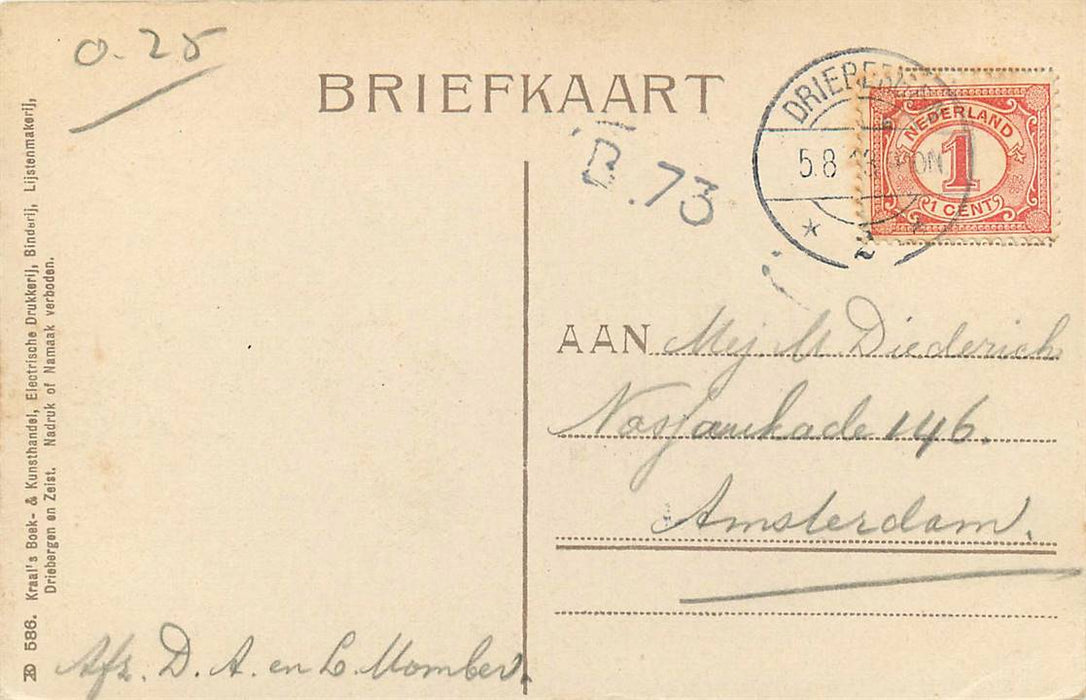 0.25
BRIEFKAART
B.73
NEDERLAND
1
1 CENT
5.8
2
AAN Mej. M Diederich
Nassaukade 146.
Amsterdam.
Afz. D. A. en L.
586. Kraal's Boek- & Kunsthandel, Electrische Drukkerij, Binderij, Lijstenmakerij,
Driebergen en Zeist. Nadruk of Namaak verboden.